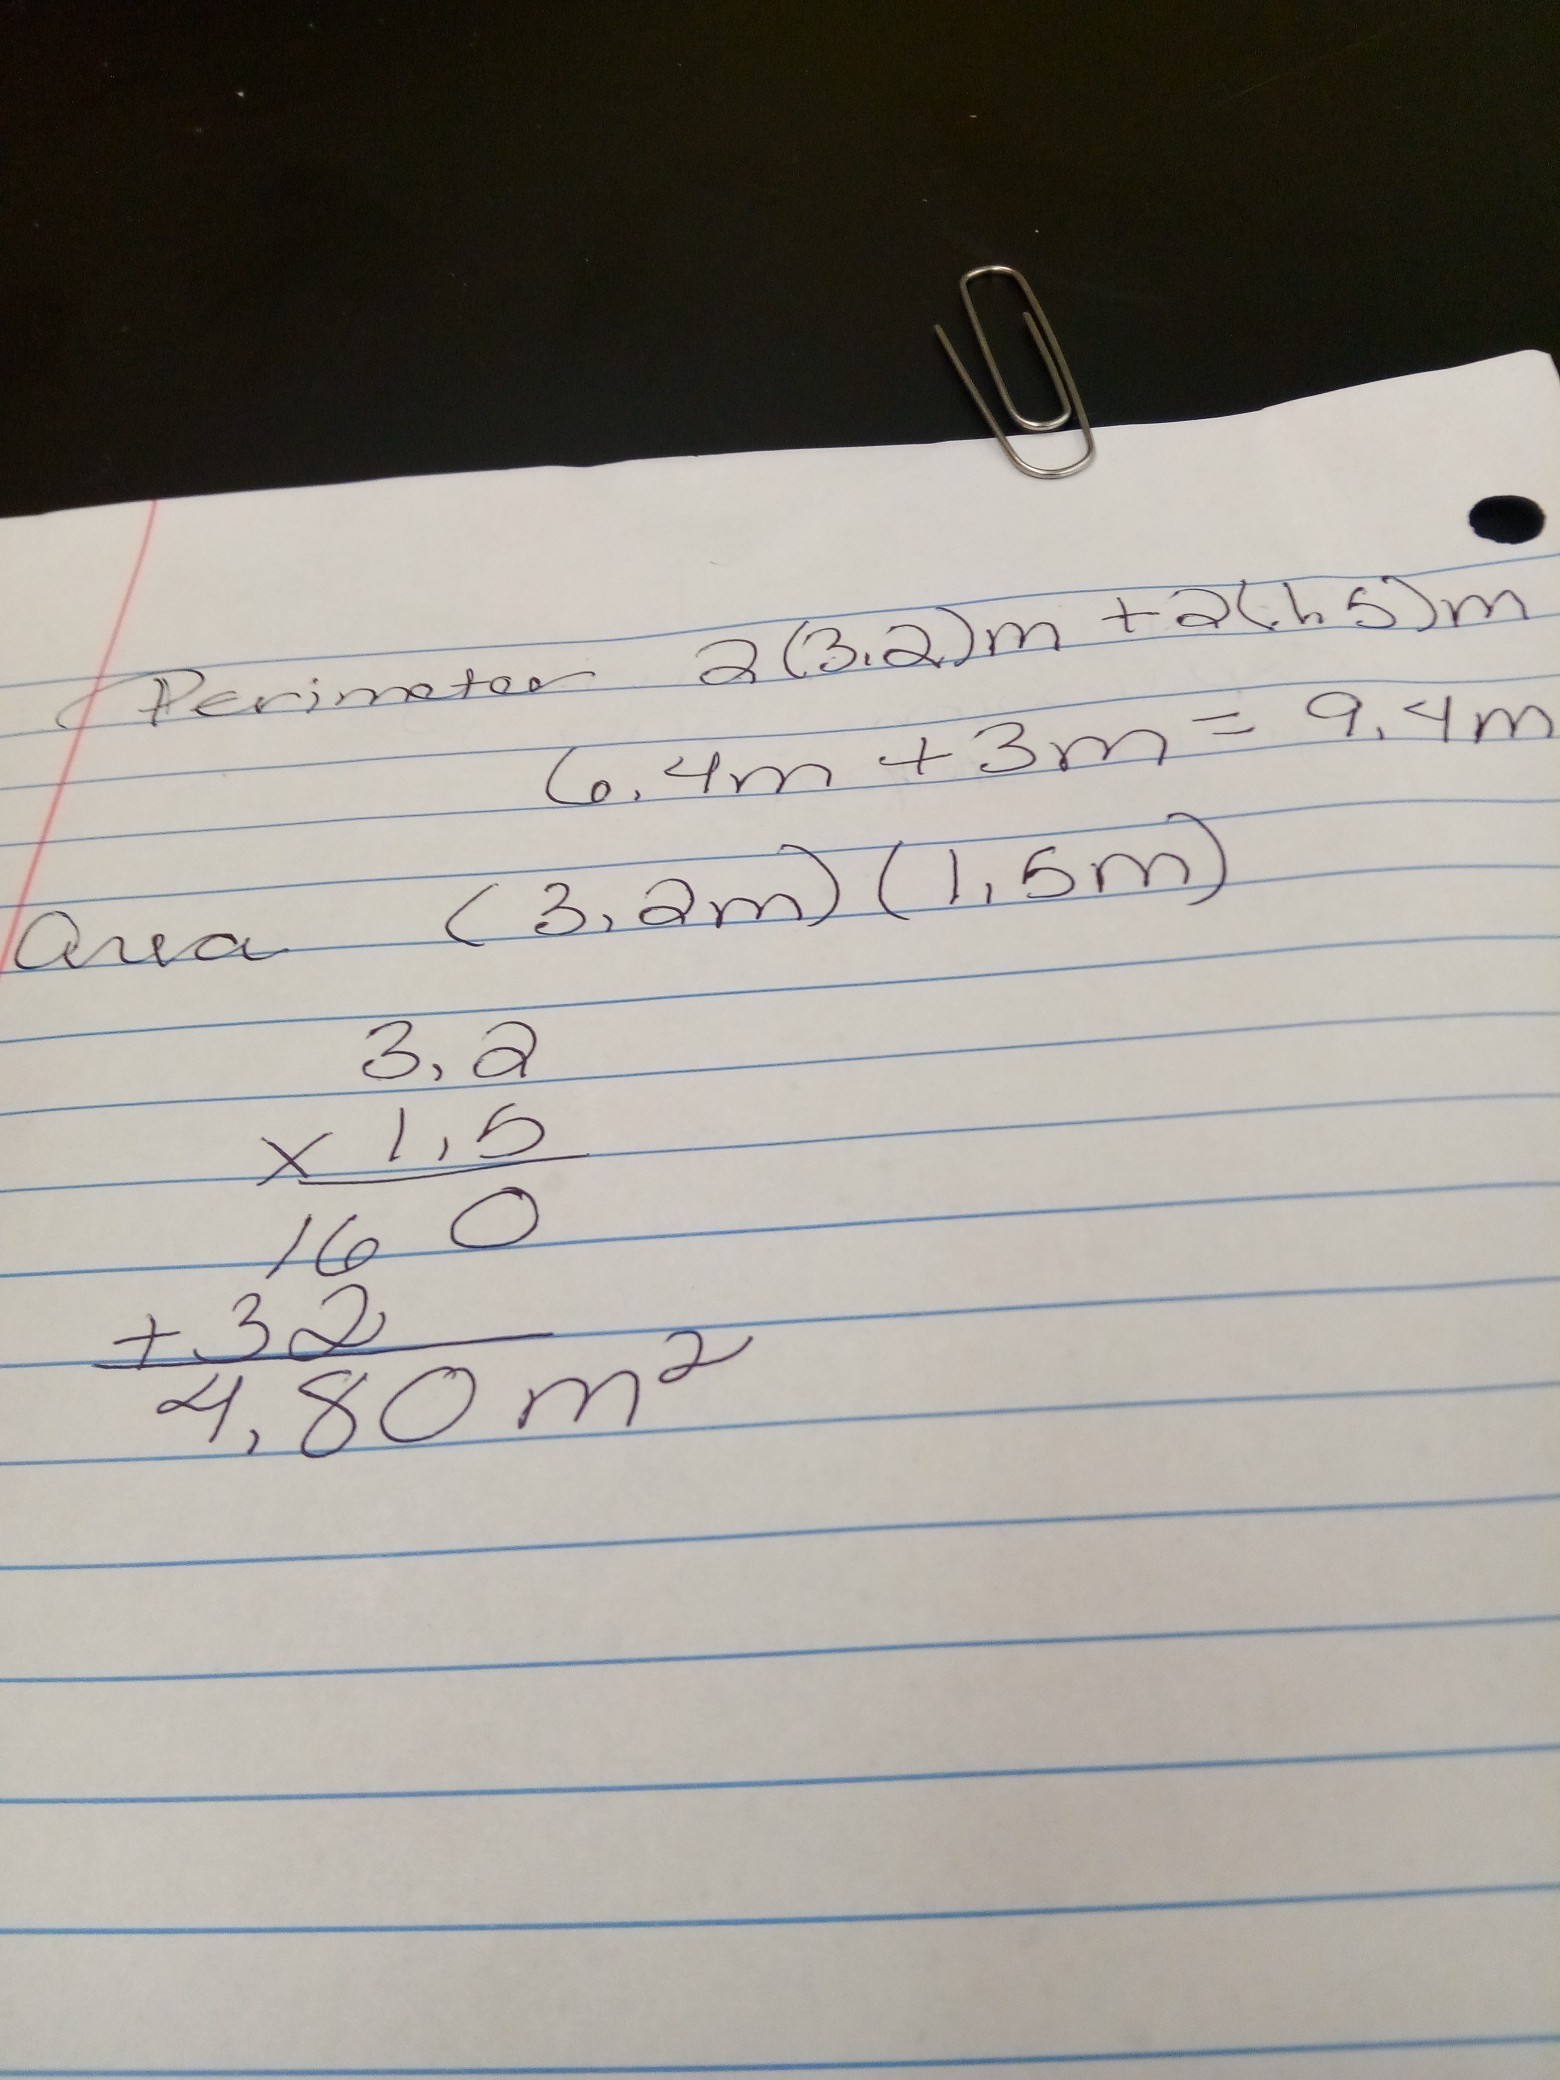 Perimeter 2(3.2)m + 2(1.5)m
6.4m + 3m = 9.4m
Area (3.2m)(1.5m)
3.2
x 1.5
160
+ 32
4.80 m²